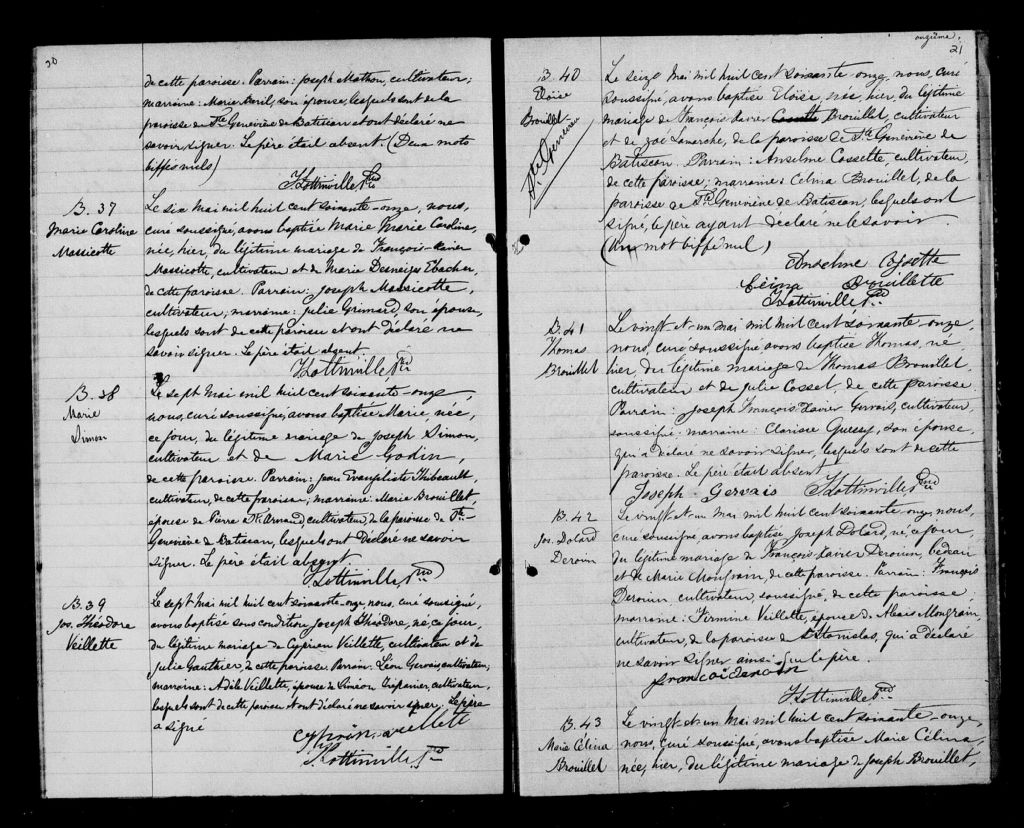 20
de cette paroisse. Parrain: Joseph Mathon, cultivateur;
marraine: Marie son épouse, lesquels sont de la
paroisse de Ste Geneviève de Batiscan et ont déclaré ne
savoir signer. Le père était absent. (Deux mots
biffés nuls)
F. Lottinville Ptre
B. 37
Marie Caroline
Massicotte
Le six mai mil huit cent soixante-onze, nous,
curé soussigné, avons baptisé Marie Marie Caroline,
née, hier, du légitime mariage de François-Xavier
Massicotte, cultivateur et de Marie Desneiges Ebacher,
de cette paroisse. Parrain: Joseph Massicotte,
cultivateur; marraine: Julie Grimard, son épouse,
lesquels sont de cette paroisse et ont déclaré ne
savoir signer. Le père était absent.
F. Lottinville, Ptre
B. 38
Marie
Simon
Le sept mai mil huit cent soixante-onze,
nous, curé soussigné, avons baptisé Marie, née,
ce jour, du légitime mariage de Joseph Simon,
cultivateur et de Marie Godin,
de cette paroisse. Parrain: Jean Evangéliste Thibeault,
cultivateur, de cette paroisse; marraine: Marie Brouillet
épouse de Pierre St. Arnaud, cultivateur, de la paroisse de Ste
Geneviève de Batiscan, lesquels ont déclaré ne savoir
signer. Le père était absent.
F. Lottinville Ptre
B. 39
Jos. Théodore
Veillette
Le sept mai mil huit cent soixante-onze, nous, curé soussigné,
avons baptisé sous condition Joseph Théodore, né, ce jour,
du légitime mariage de Cyprien Veillette, cultivateur et de
Julie Gauthier, de cette paroisse. Parrain: Léon Gervais, cultivateur;
marraine: Adèle Veillette, épouse de Siméon Trépanier, cultivateur,
lesquels sont de cette paroisse et ont déclaré ne savoir signer. Le père
a signé
F. Lottinville Ptre
onzième.
21
B. 40
Eloïse
Brouillet
Ste Geneviève
Le seize mai mil huit cent soixante-onze, nous, curé
soussigné, avons baptisé Eloïse, née, hier, du légitime
mariage de François-Xavier Cossette Brouillet, cultivateur
et de Zoé Lanarche, de la paroisse de Ste Geneviève de
Batiscan. Parrain: Anselme Cossette, cultivateur,
de cette paroisse; marraine: Celina Brouillet, de la
paroisse de Ste Geneviève de Batiscan, lesquels ont
signé, le père ayant déclaré ne le savoir
(Un mot biffé nul)
Anselme Cossette
Célina Brouillette
F. Lottinville Ptre
B. 41
Thomas
Brouillet
Le vingt et un mai mil huit cent soixante-onze,
nous, curé soussigné, avons baptisé Thomas, né
hier, du légitime mariage de Thomas Brouillet,
cultivateur et de Julie Cosset de cette paroisse
Parrain: Joseph François-Xavier Gervais, cultivateur,
soussigné. marraine: Clarisse Guessy, son épouse,
qui a déclaré ne savoir signer, lesquels sont de cette
paroisse. Le père était absent.
Joseph Gervais F. Lottinville Ptre
B. 42
Jos. Dolard
Derouin
Le vingt et un mai mil huit cent soixante-onze, nous,
curé soussigné, avons baptisé Joseph Dolard, né, ce jour,
du légitime mariage de François-Xavier Derouin, bédeau
et de Marie Mongrain, de cette paroisse. Parrain: François
Derouin cultivateur, soussigné, de cette paroisse,
marraine: Firmine Veillette, épouse de Alexis Mongrain
cultivateur, de la paroisse de St. Stanislas, qui a déclaré
ne savoir signer ainsi que le père.
François Derouin
F. Lottinville Ptre
B. 43
Marie Célina
Brouillet
Le vingt et un mai mil huit cent soixante-onze,
nous, curé soussigné, avons baptisé Marie Célina,
née, hier, du légitime mariage de Joseph Brouillet,